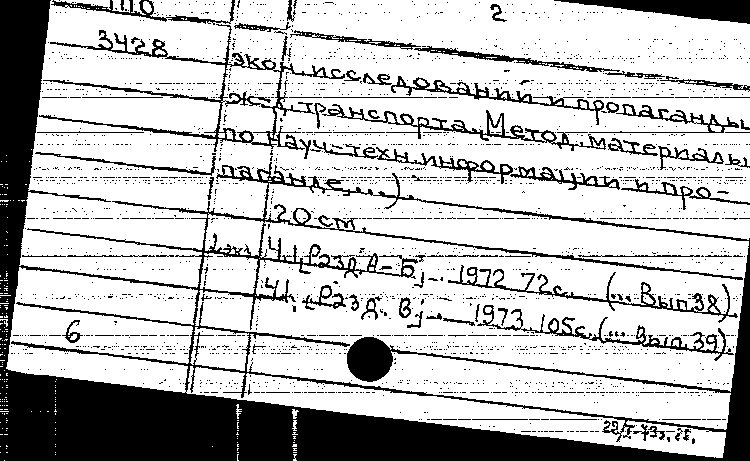 ППО 2
3428 экон. исследований и пропаганды
ж-д. транспорта. (Метод. материалы
по науч-техн. информации и про-
паганде, ...).
20 см.
2 экз. Ч.1. [Разд. А-Б]. 1972 72с. (... Вып.38).
Ч.1. [Разд. В]. 1973. 105с. (... Вып.39).
6